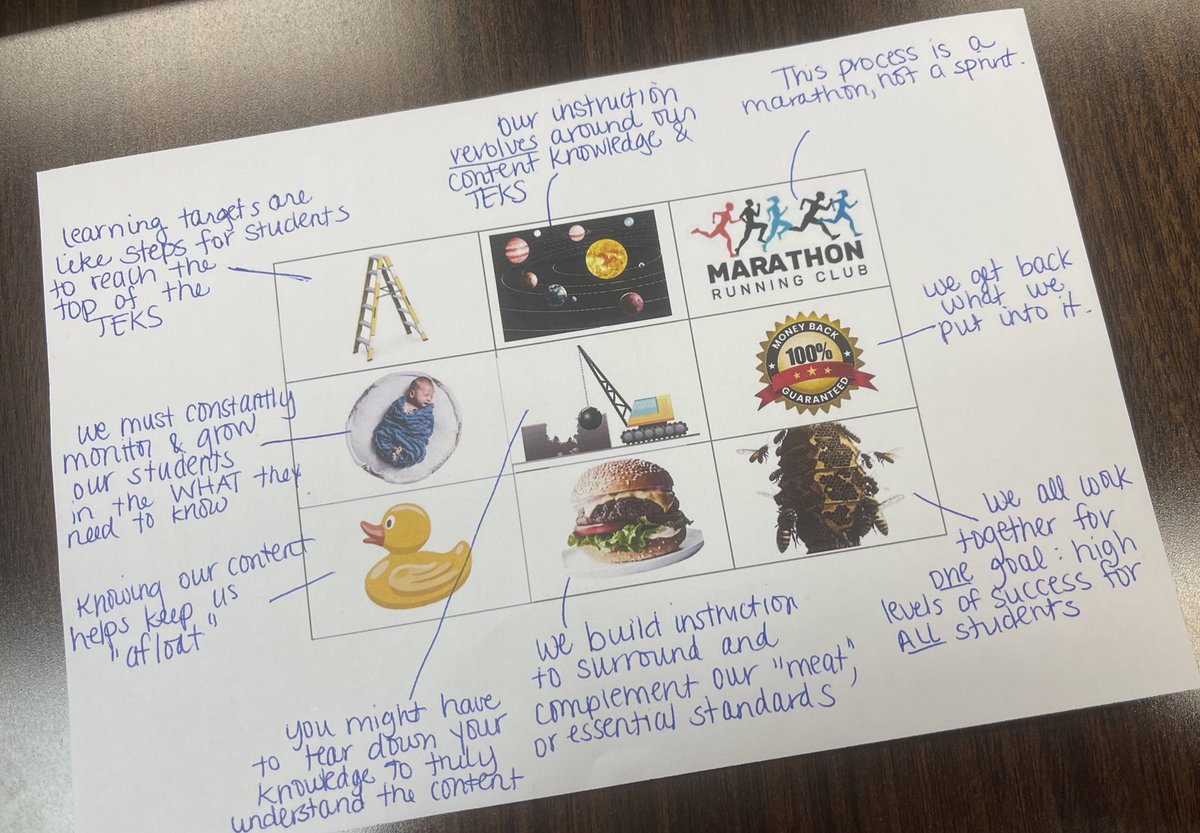 This process is a
marathon, not a sprint.
our instruction
revolves around our
content knowledge &
TEKS
learning targets are
like steps for students
to reach the
top of the
TEKS
MARATHON
RUNNING CLUB
we get back
what we
put into it.
MONEY BACK
100%
GUARANTEED
we must constantly
monitor & grow
our students
in the WHAT they
need to know
we all work
together for
one goal: high
levels of success for
ALL students
Knowing our content
helps keep us
"afloat"
we build instruction
to surround and
complement our "meat",
or essential standards
you might have
to tear down your
knowledge to truly
understand the content